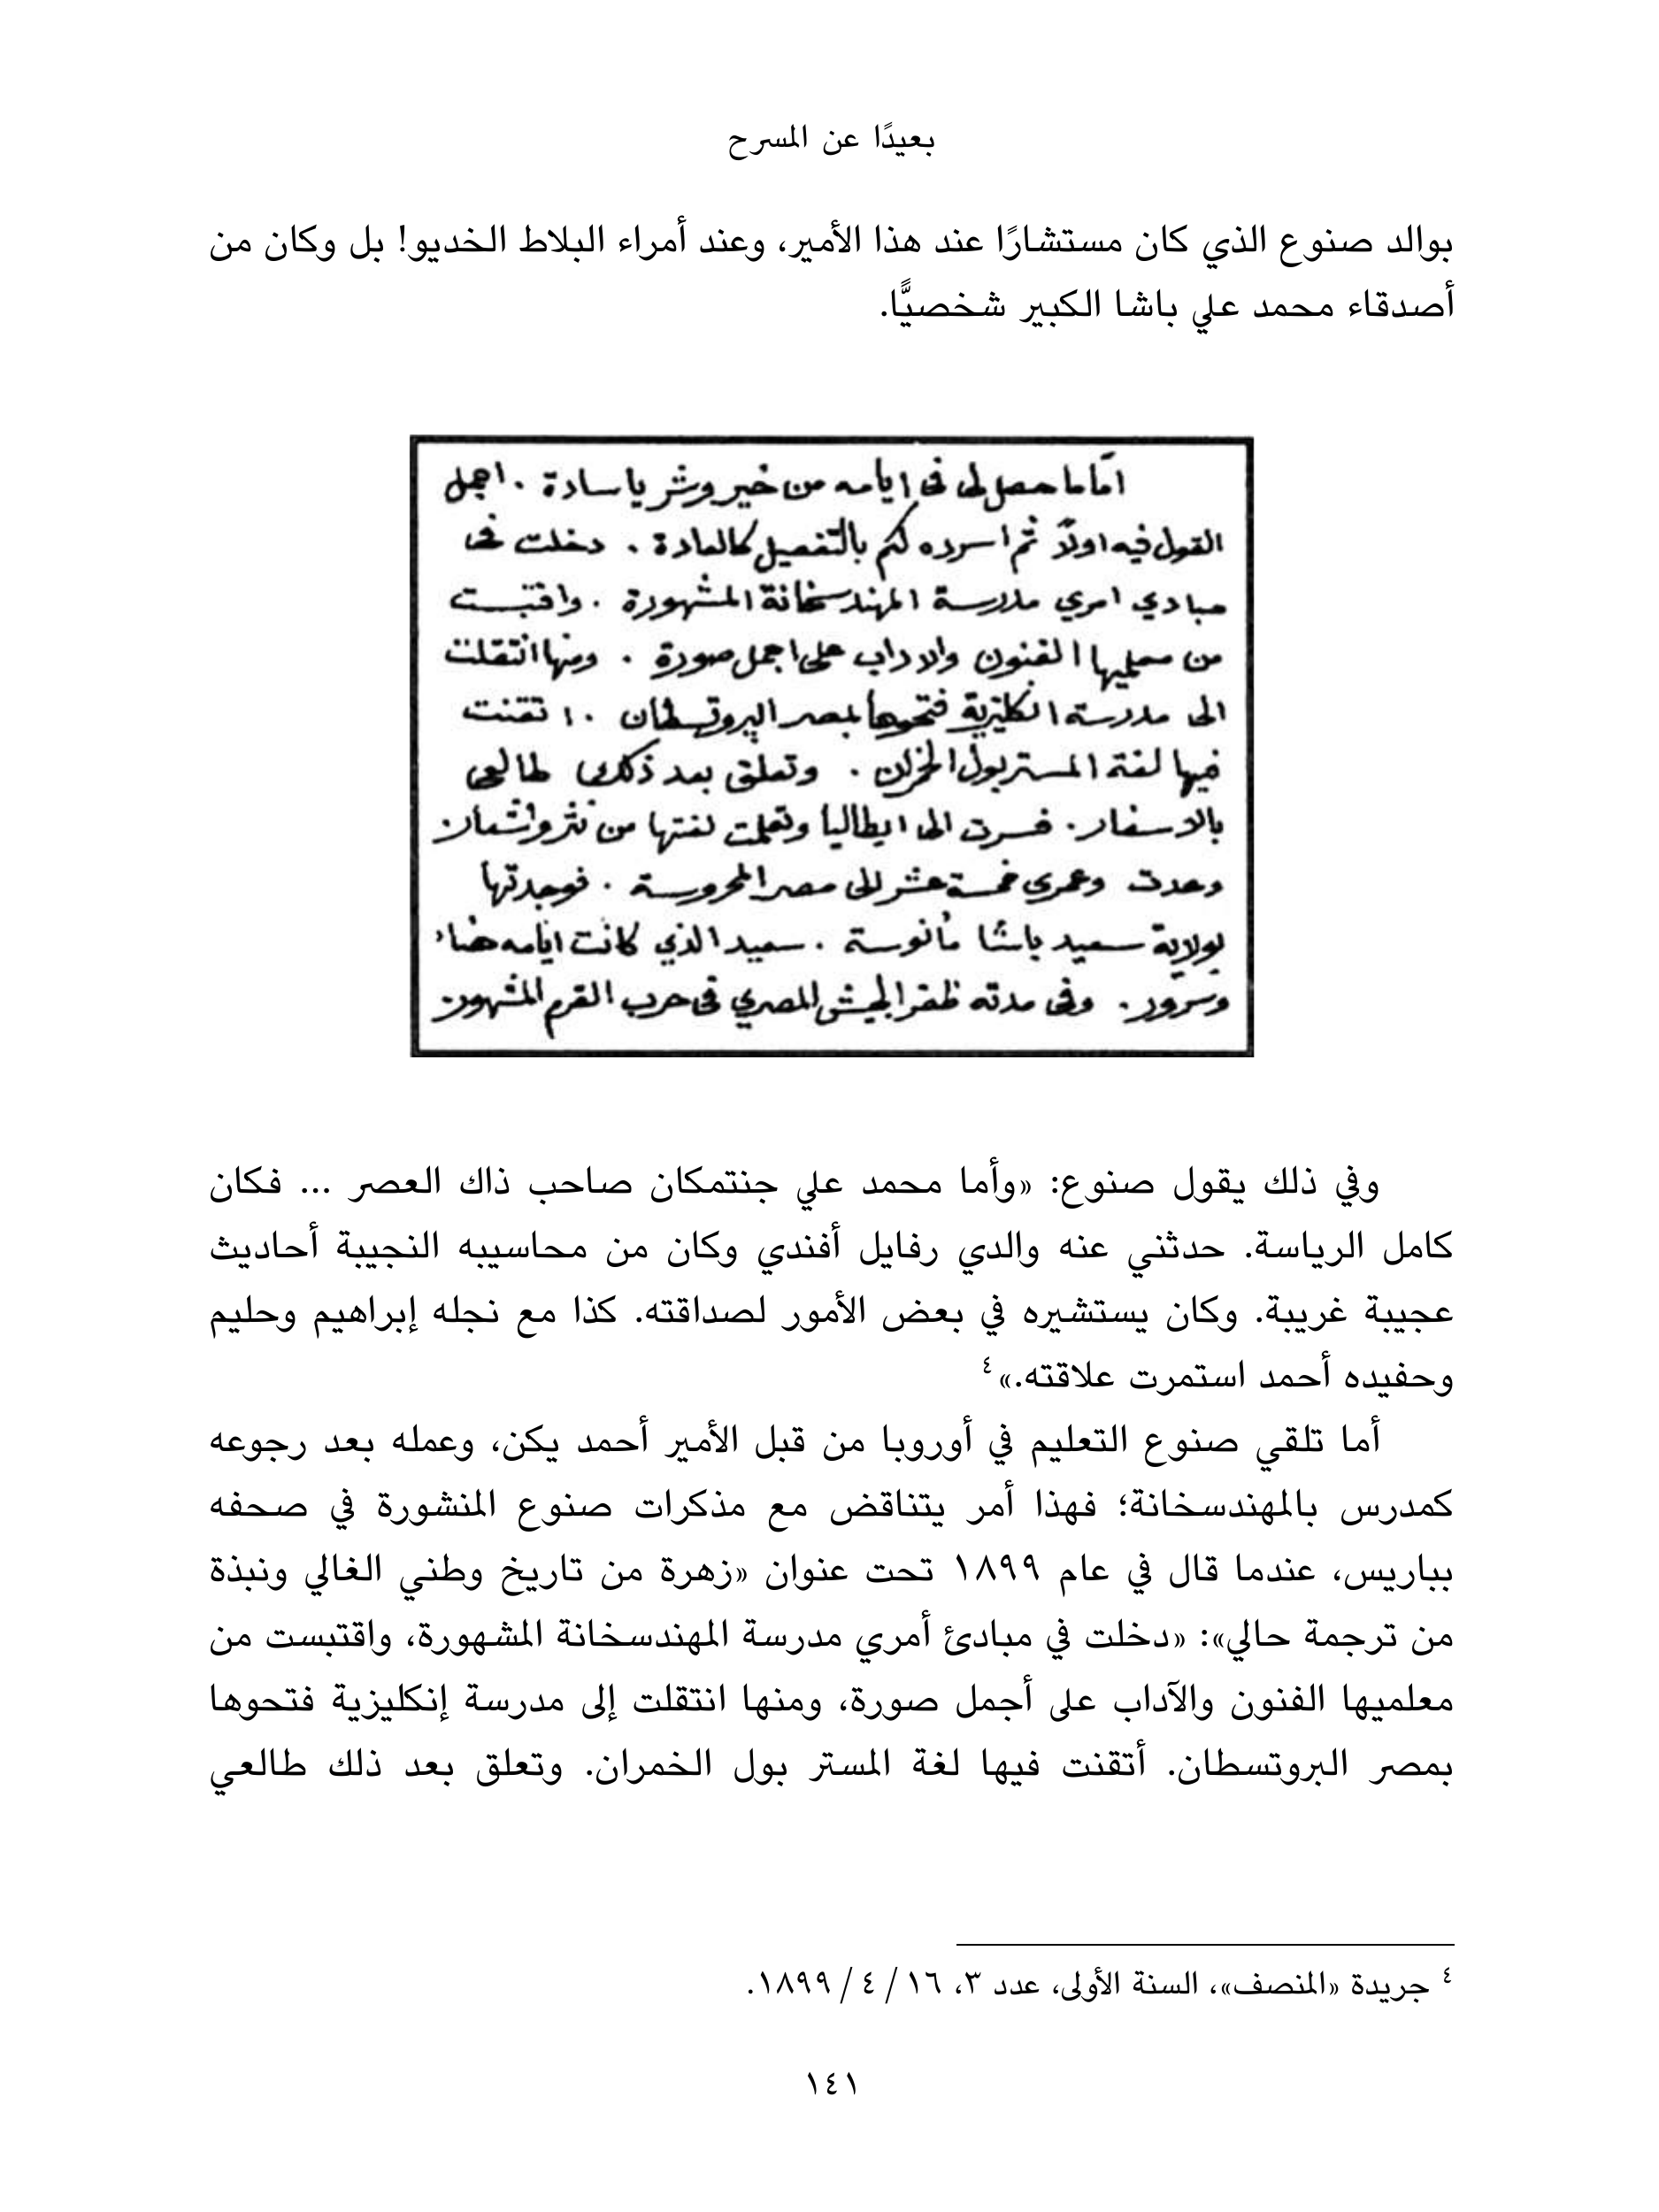 بعيدًا عن المسرح
بوالد صنوع الذي كان مستشارًا عند هذا الأمير، وعند أمراء البلاط الخديو! بل وكان من
أصدقاء محمد علي باشا الكبير شخصيًّا.
امّا ما حصل لى فى ايامه من خير وشر يا سادة . اجمل
القول فيه اولاً ثم اسرده لكم بالتفصيل كالعادة . دخلت فى
مبادي امري مدرسة المهندسخانة المشهورة . واقتبست
من معلميها الفنون والاداب على اجمل صورة . ومنها انتقلت
الى مدرسة انكليزية فتحوها بمصر البروتسطان . اتقنت
فيها لغة المستر بول . وتعلق بعد ذلك طالعى
بالاسفار . فسرت الى ايطاليا وتعلمت لغتها من نثر واشعار .
وعدت وعمري خمسة عشر الى مصر المحروسة . فوجدتها
بولاية سعيد باشا مأنوسة . سعيد الذي كانت ايامه هناء
وسرور . وفى مدته ظفر الجيش المصري فى حرب القرم المشهور .
وفي ذلك يقول صنوع: «وأما محمد علي جنتمكان صاحب ذاك العصر … فكان
كامل الرياسة. حدثني عنه والدي رفايل أفندي وكان من محاسيبه النجيبة أحاديث
عجيبة غريبة. وكان يستشيره في بعض الأمور لصداقته. كذا مع نجله إبراهيم وحليم
وحفيده أحمد استمرت علاقته.»٤
أما تلقي صنوع التعليم في أوروبا من قبل الأمير أحمد يكن، وعمله بعد رجوعه
كمدرس بالمهندسخانة؛ فهذا أمر يتناقض مع مذكرات صنوع المنشورة في صحفه
بباريس، عندما قال في عام ١٨٩٩ تحت عنوان «زهرة من تاريخ وطني الغالي ونبذة
من ترجمة حالي»: «دخلت في مبادئ أمري مدرسة المهندسخانة المشهورة، واقتبست من
معلميها الفنون والآداب على أجمل صورة، ومنها انتقلت إلى مدرسة إنكليزية فتحوها
بمصر البروتسطان. أتقنت فيها لغة المستر بول الخمران. وتعلق بعد ذلك طالعي
٤ جريدة «المنصف»، السنة الأولى، عدد ٣، ١٦ / ٤ / ١٨٩٩.
١٤١